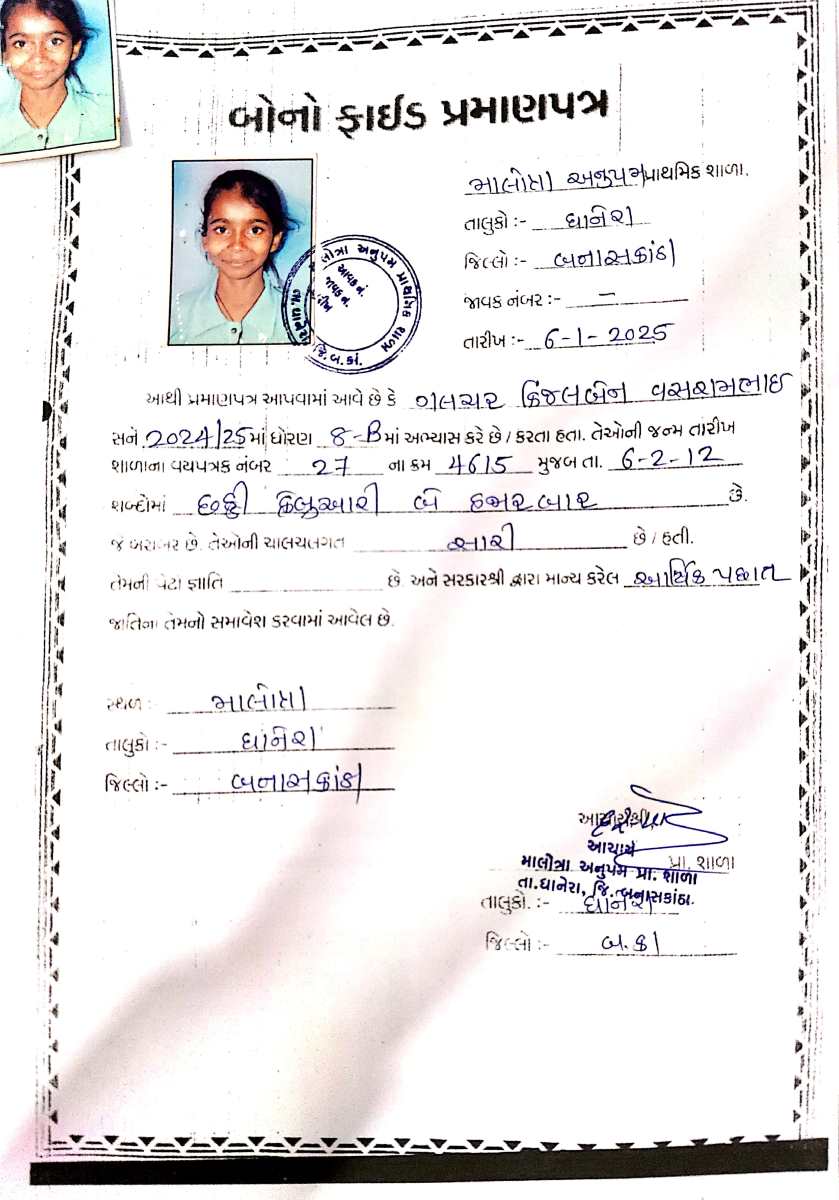 બોનો ફાઈડ પ્રમાણપત્ર
માલોત્રા અનુપમ પ્રાથમિક શાળા.
તાલુકો :- ધાનેરા
જિલ્લો :- બનાસકાંઠા
જાવક નંબર :- –
તારીખ :- 6-1-2025
માલોત્રા અનુપમ પ્રાથમિક શાળા
આવક નં.
જાવક નં.
તારીખ
જિ.બ.કાં.
આથી પ્રમાણપત્ર આપવામાં આવે છે કે ગલચર કિંજલબેન વસરામભાઈ
સને 2024/25 માં ધોરણ 8-B માં અભ્યાસ કરે છે / કરતા હતા. તેઓની જન્મ તારીખ
શાળાના વયપત્રક નંબર 27 ના ક્રમ 4615 મુજબ તા. 6-2-12
શબ્દોમાં છઠ્ઠી ફેબ્રુઆરી બે હજાર બાર છે.
જે બરાબર છે. તેઓની ચાલચલગત સારી છે / હતી.
તેમની પેટા જ્ઞાતિ છે અને સરકારશ્રી દ્વારા માન્ય કરેલ આર્થિક પછાત
જાતિના તેમનો સમાવેશ કરવામાં આવેલ છે.
સ્થળ :- માલોત્રા
તાલુકો :- ધાનેરા
જિલ્લો :- બનાસકાંઠા
આચાર્યશ્રી,
આચાર્ય
પ્રા. શાળા
માલોત્રા અનુપમ પ્રા. શાળા
તા.ધાનેરા, જિ. બનાસકાંઠા.
તાલુકો. :- ધાનેરા
જિલ્લો :- બ.કાં